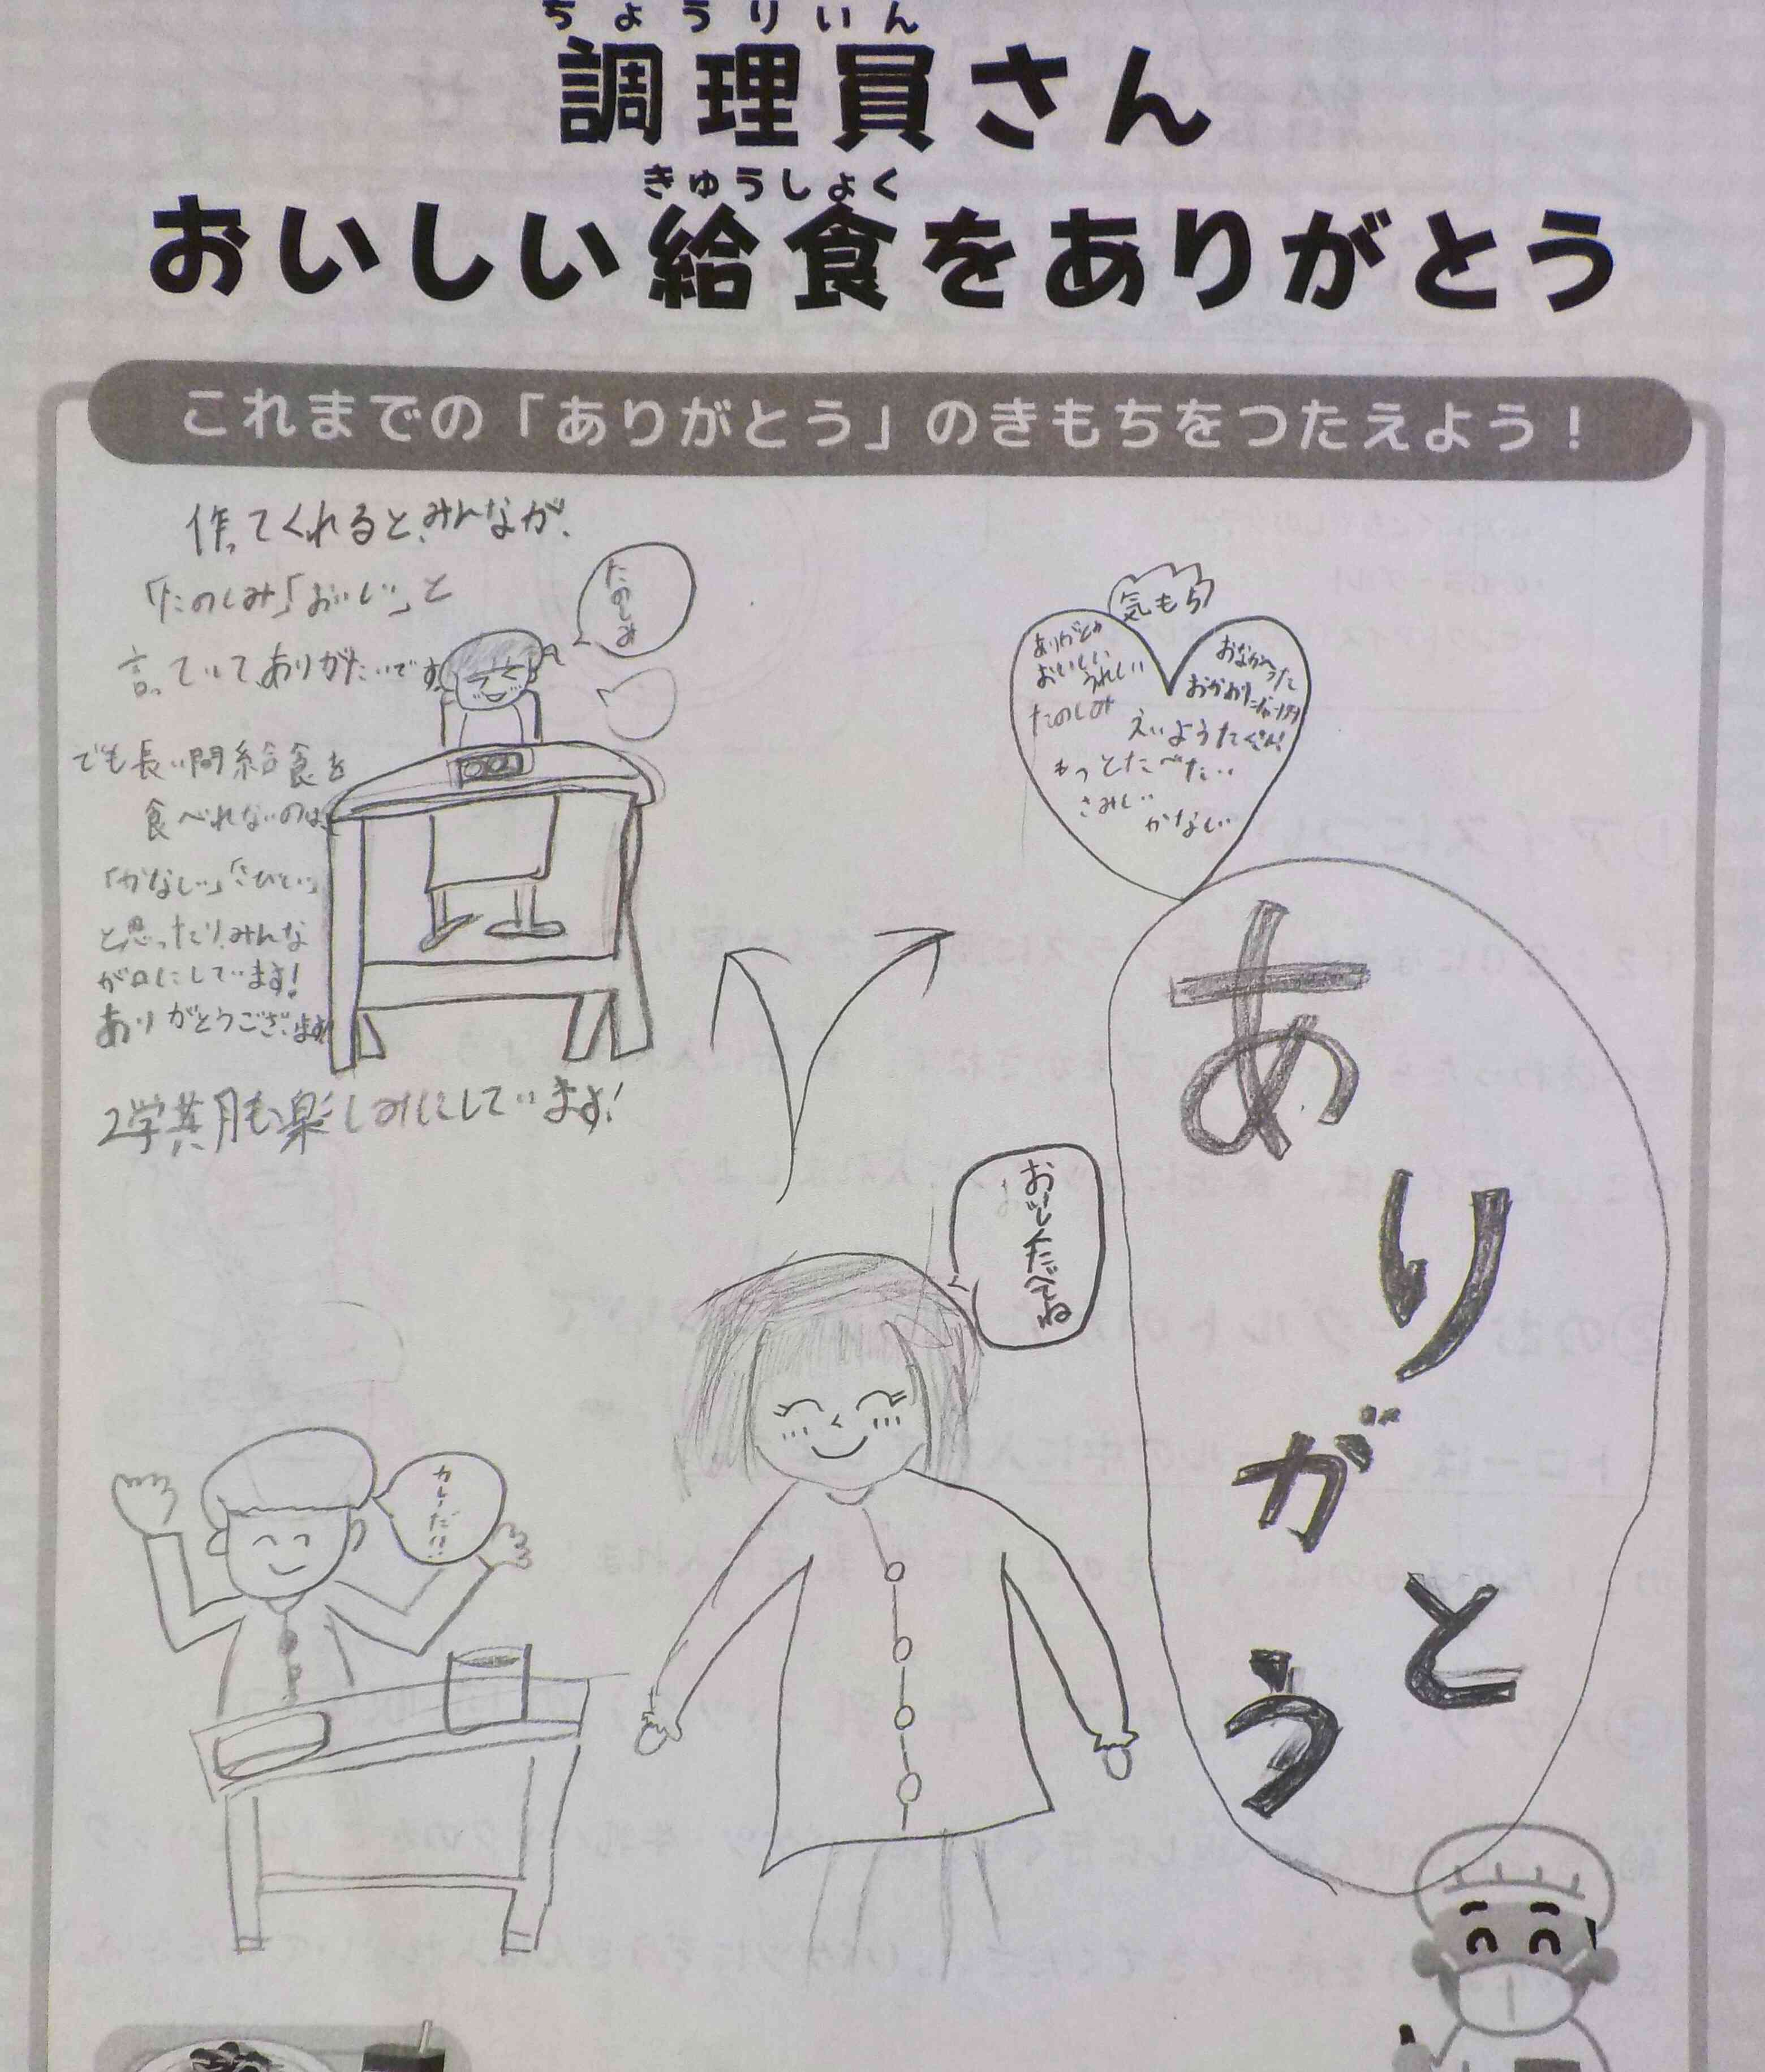 ちょうりいん
調理員さん
きゅうしょく
おいしい給食をありがとう
これまでの「ありがとう」のきもちをつたえよう!
作ってくれると、みんなが、
「たのしみ」「おいしい」と
言っていてありがたいです
でも長い間給食を
食べれないのは、
「かなしい」「さびしい」
と思ったり、みんな
が口にしています!
ありがとうございます!
2学期も楽しみにしています!
たのしみ
気もち
ありがとう
おいしい
うれしい
たのしみ
おなかへった
おかわり
えいようたくさん!
もっとたべたい
さみしい
かなしい
おいしくたべてね
カレーだ!!
ありがとう